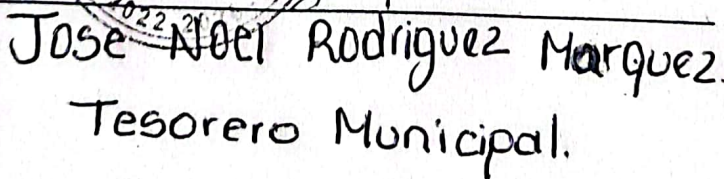 022 2
Jose Noel Rodriguez Marquez.
Tesorero Municipal.